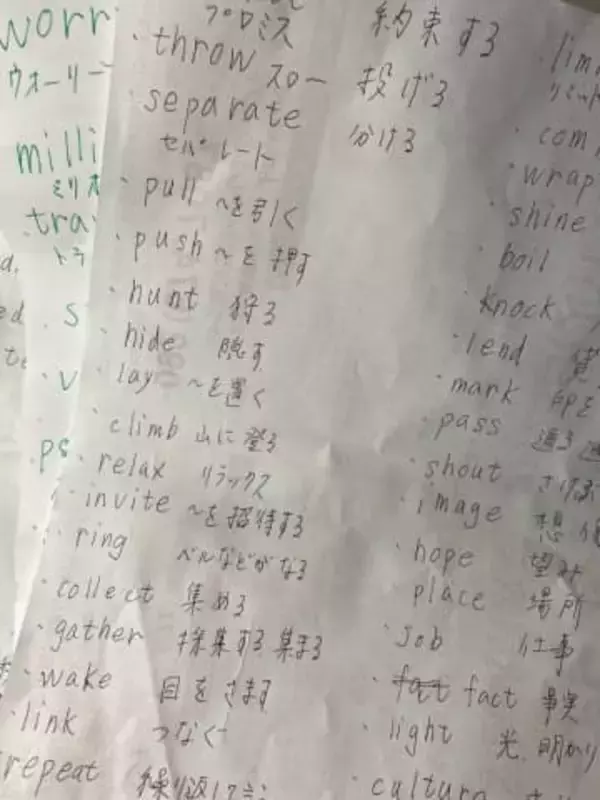 worr
ウォーリー
milli
ミリオ
tra
トラ
プロミス 約束する
・throw スロー 投げる
・separate 分ける
セパレート
・pull ～を引く
・push ～を押す
・hunt 狩る
・hide 隠す
・lay ～を置く
・climb 山に登る
・relax リラックス
・invite ～を招待する
・ring ベルなどがなる
・collect 集める
・gather 採集する 集まる
・wake 目をさます
・link つなぐ
repeat
・lim
リミット
・com
・wrap
・shine
・boil
・knock
・lend
・mark 印を
・pass 通る
・shout さけぶ
・image 想像
・hope 望み
place 場所
・job 仕事
・fact 事実
・light 光、明かり
・cultur